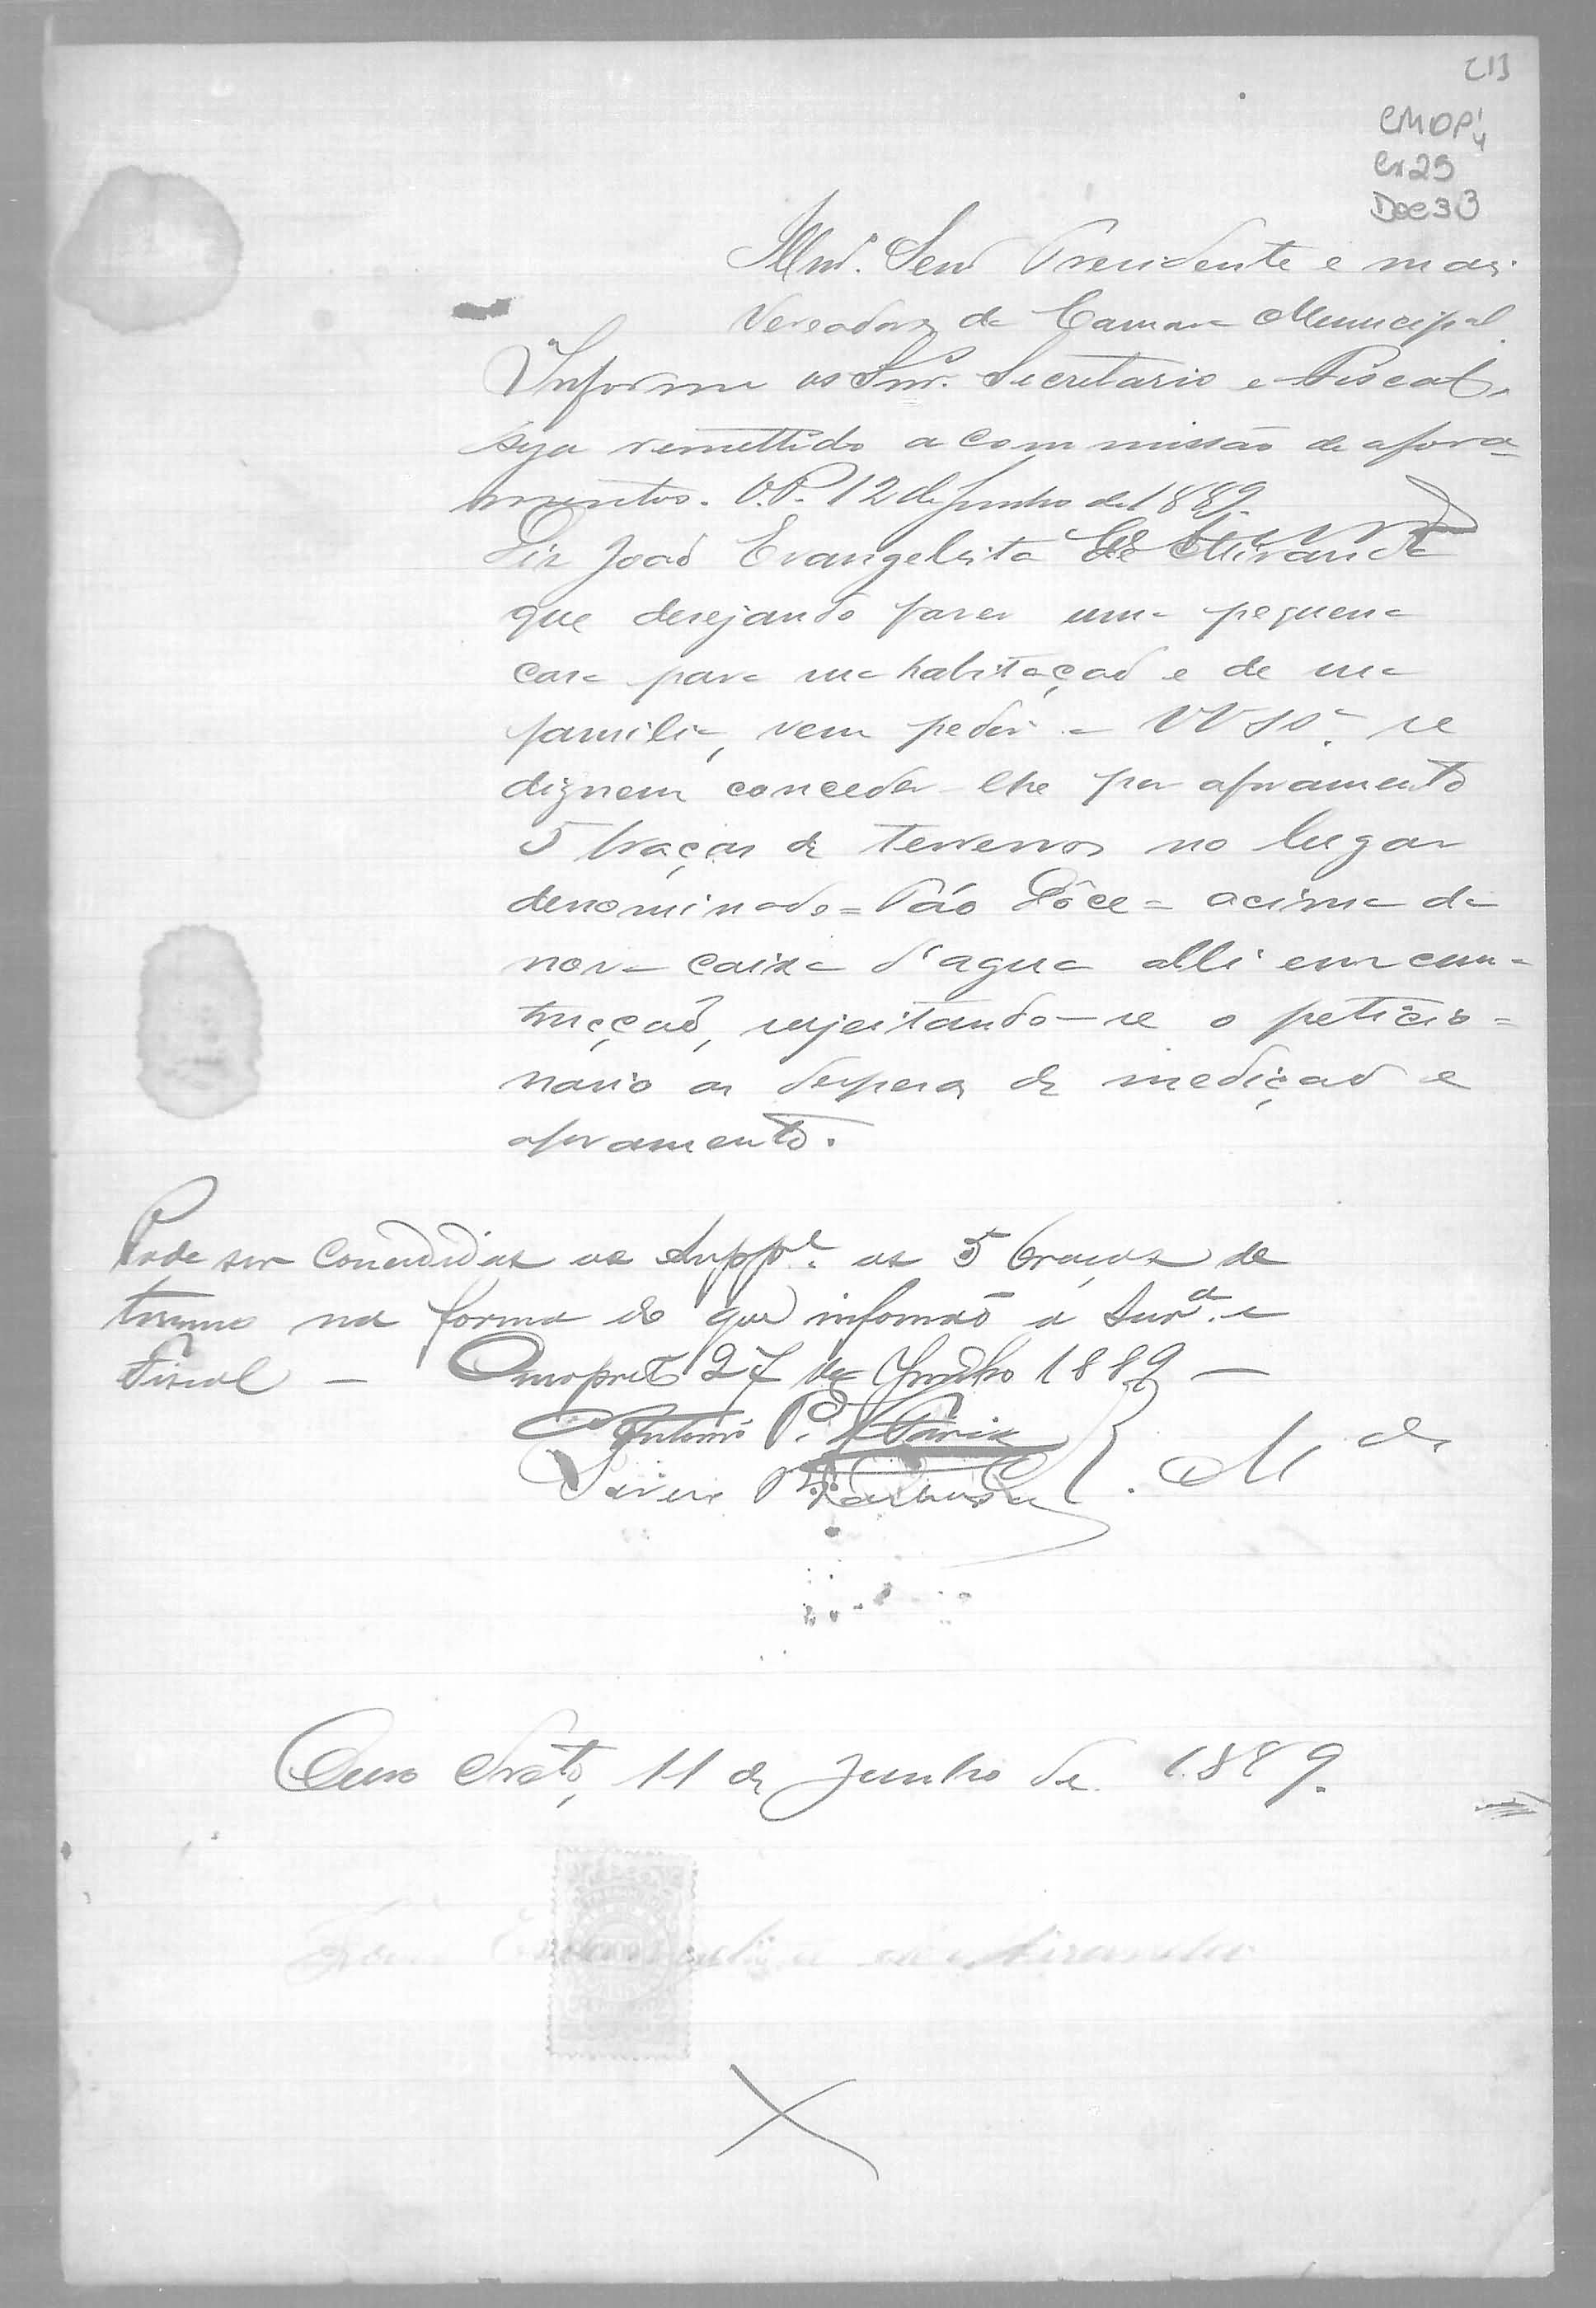 213
CMOP
Cx 29
Doc 33
Illmº. Senr Presidente e mais
Vereadores da Camara Municipal
Informe os Snr. Secretario e Fiscal,
seja remettido a commissão de afora-
mentos. O.P. 12 de Junho de 1889.
Diz João Evangelista de Miranda
que desejando fazer uma pequena
casa para sua habitação e de sua
familia, vem pedir a VV SSª. se
dignem conceder-lhe por aforamento
5 braças de terrenos no lugar
denominado = Páo Dôce = acima da
nova caixa d'agua alli em cons-
trucção, sujeitando-se o peticio=
nario as despesas de medição e
aforamento.
Pode ser concedidas ao Suppe. as 5 braças de
terreno na forma do que informão a Secrª. e
Fiscal — Ouropreto 27 de Junho 1889 —
Antonio P.
Ouro Preto, 11 de Junho de 1889.
João Evangelista de Miranda